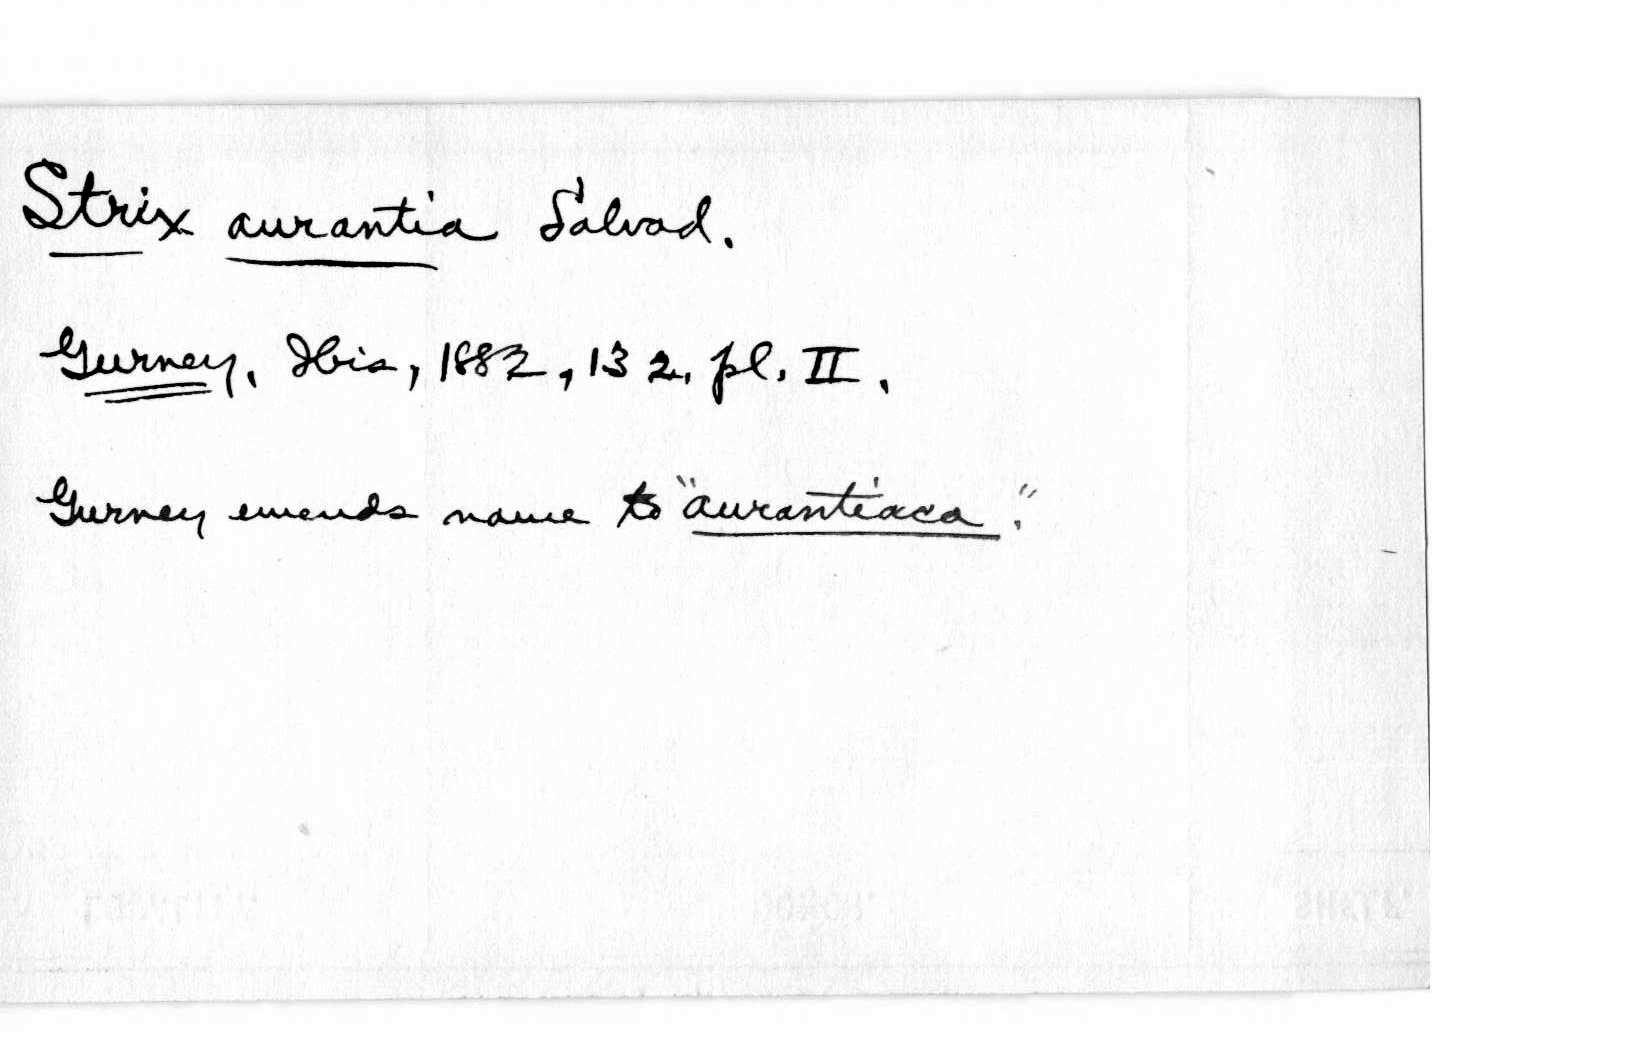 Strix aurantia Salvad.
Gurney, Ibis, 1882, 132, pl. II.
Gurney emends name to "aurantiaca."